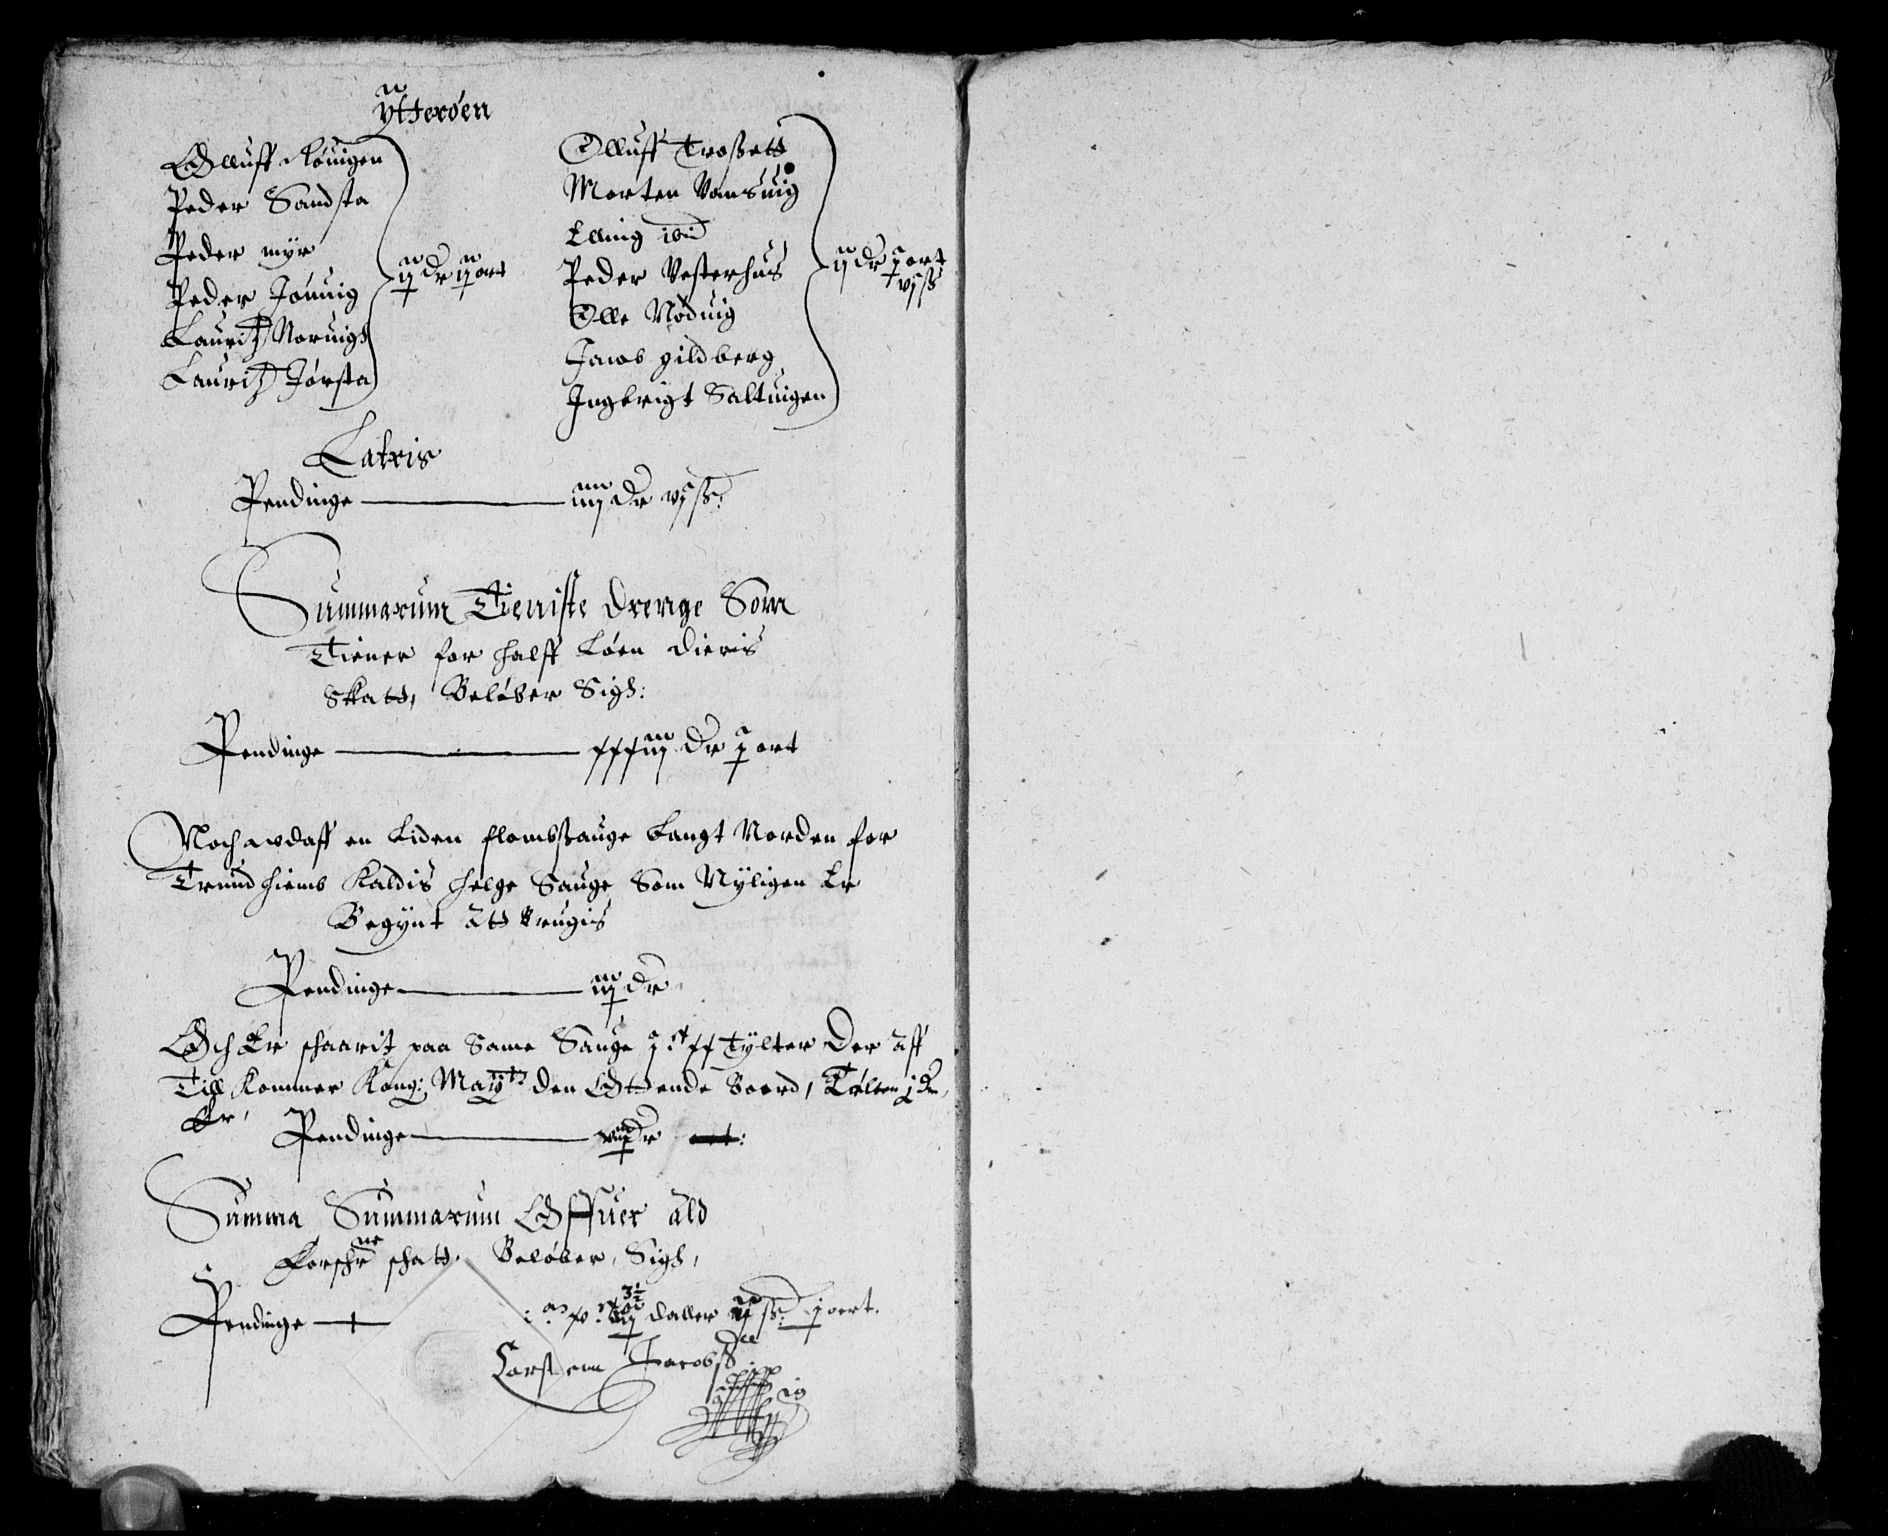 Ytterøen
Olluff Løuigen
Peder Sandsta
Peder myr
Peder Jønuig
Lauritz Noruigh
Lauritz Jørsta
ij dr ij ort
Olluff Troßett
Morten Vansuig
Elling ibid
Peder Vesterhus
Olle Nøduig
Jacob gildberg
Ingbrigt Saltuigen
ij dr j ort
vj ß
Lateris
Pendinge — iiij dr vj ß:
Summarum Tieniste drenge Som
Tiener for halff Løen dieris
Skatt, Beløber Sigh:
Pendinge — xxxiij dr j ort
Noch aff en Liden flombsauge Langt Norden for
Trundhiemb Kaldis helge Sauge, Som Nyligen Er
Begynt att brugis
Pendinge — iij dr
Och Er schaarit paa Same Sauge j c xx Tylter Der aff
Till Kommer Kong: May tz den Ottende Boord, Tølten j dr
Er,
Pendinge — dr ort:
Summa Summarum Offuer ald
Forschne schatt, Beløber, Sigh,
Pendinge — daller ß: j oert.
Carsten Jacobsd